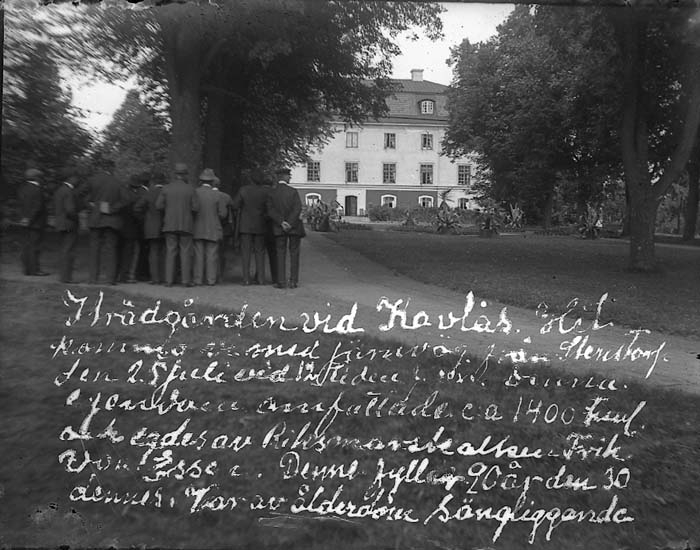 Trädgården vid Kavlås. Hit
kommo vi med järnväg från Stenstorp
den 25 juli vid 12 tiden f. m. Denna
egendom omfattade c:a 1400 tunl.
och egdes av Riksmarskalken Frih.
Von Essen. Denne fyller 90 år den 30
dennes. Var av Ålderdom sängliggande